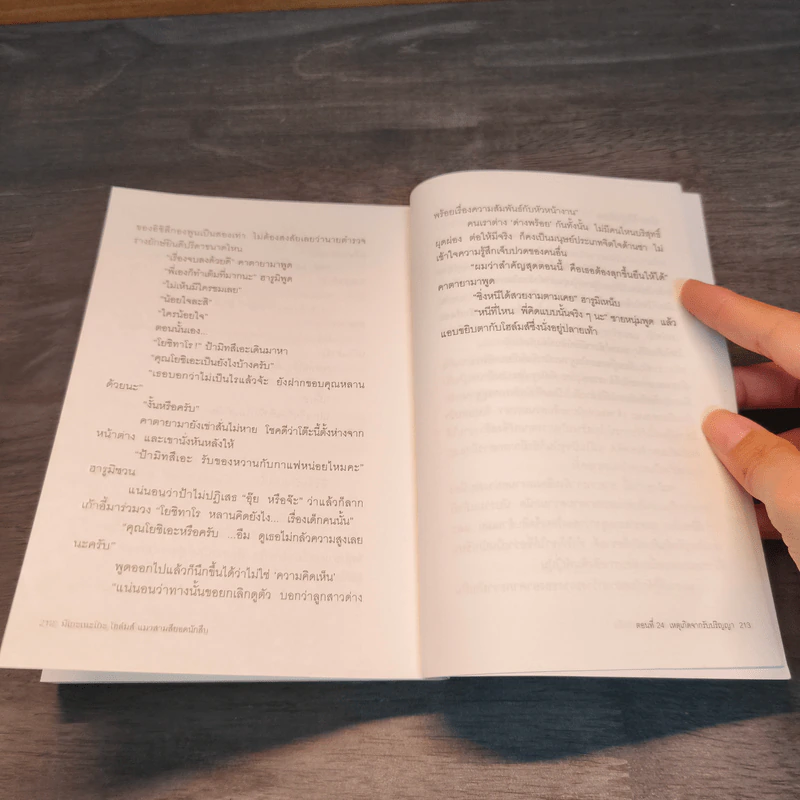 ของอิชิสึกองพูนเป็นสองเท่า ไม่ต้องสงสัยเลยว่านายตำรวจ
ร่างยักษ์ยินดีปรีดาขนาดไหน
"เรื่องจบลงด้วยดี" คาตายามาพูด
"พี่เองก็ทำเต็มที่มากนะ" ฮารูมิพูด
"ไม่เห็นมีใครชมเลย"
"น้อยใจละสิ"
"ใครน้อยใจ"
ตอนนั้นเอง...
"โยชิทาโร!" ป้ามิทสึเอะเดินมาหา
"คุณโยชิเอะเป็นยังไงบ้างครับ"
"เธอบอกว่าไม่เป็นไรแล้วจ้ะ ยังฝากขอบคุณหลาน
ด้วยนะ"
"งั้นหรือครับ"
คาตายามายังเข่าสั่นไม่หาย โชคดีว่าโต๊ะนี้ตั้งห่างจาก
หน้าต่าง และเขานั่งหันหลังให้
"ป้ามิทสึเอะ รับของหวานกับกาแฟหน่อยไหมคะ"
ฮารูมิชวน
แน่นอนว่าป้าไม่ปฏิเสธ "อุ๊ย หรือจ๊ะ" ว่าแล้วก็ลาก
เก้าอี้มาร่วมวง "โยชิทาโร หลานคิดยังไง... เรื่องเด็กคนนั้น"
"คุณโยชิเอะหรือครับ ...อืม ดูเธอไม่กลัวความสูงเลย
นะครับ"
พูดออกไปแล้วก็นึกขึ้นได้ว่าไม่ใช่ 'ความคิดเห็น'
"แน่นอนว่าทางนั้นขอยกเลิกดูตัว บอกว่าลูกสาวด่าง
โฮล์มส์ แมวสามสียอดนักสืบ
พร้อยเรื่องความสัมพันธ์กับหัวหน้างาน"
คนเราต่าง 'ด่างพร้อย' กันทั้งนั้น ไม่มีคนไหนบริสุทธิ์
ผุดผ่อง ต่อให้มีจริง ก็คงเป็นมนุษย์ประเภทจิตใจด้านชา ไม่
เข้าใจความรู้สึกเจ็บปวดของคนอื่น
"ผมว่าสำคัญสุดตอนนี้ คือเธอต้องลุกขึ้นยืนให้ได้"
คาตายามาพูด
"ซึ่งหนีได้สวยงามตามเคย" ฮารูมิเหน็บ
"หนีที่ไหน พี่คิดแบบนั้นจริง ๆ นะ" ชายหนุ่มพูด แล้ว
แอบขยิบตากับโฮล์มส์ซึ่งนั่งอยู่ปลายเท้า
ตอนที่ 24 เหตุเกิดจากรับปริญญา 213